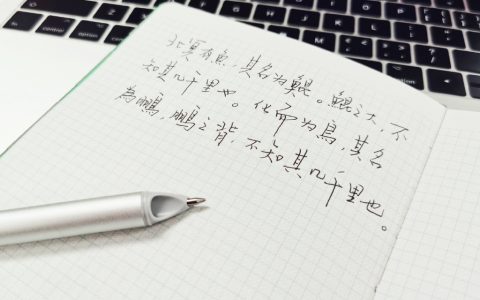 北冥有魚，其名为鯤。鯤之大，不
知其几千里也。化而为鳥，其名
為鵬，鵬之背，不知其几千里也。
control
option